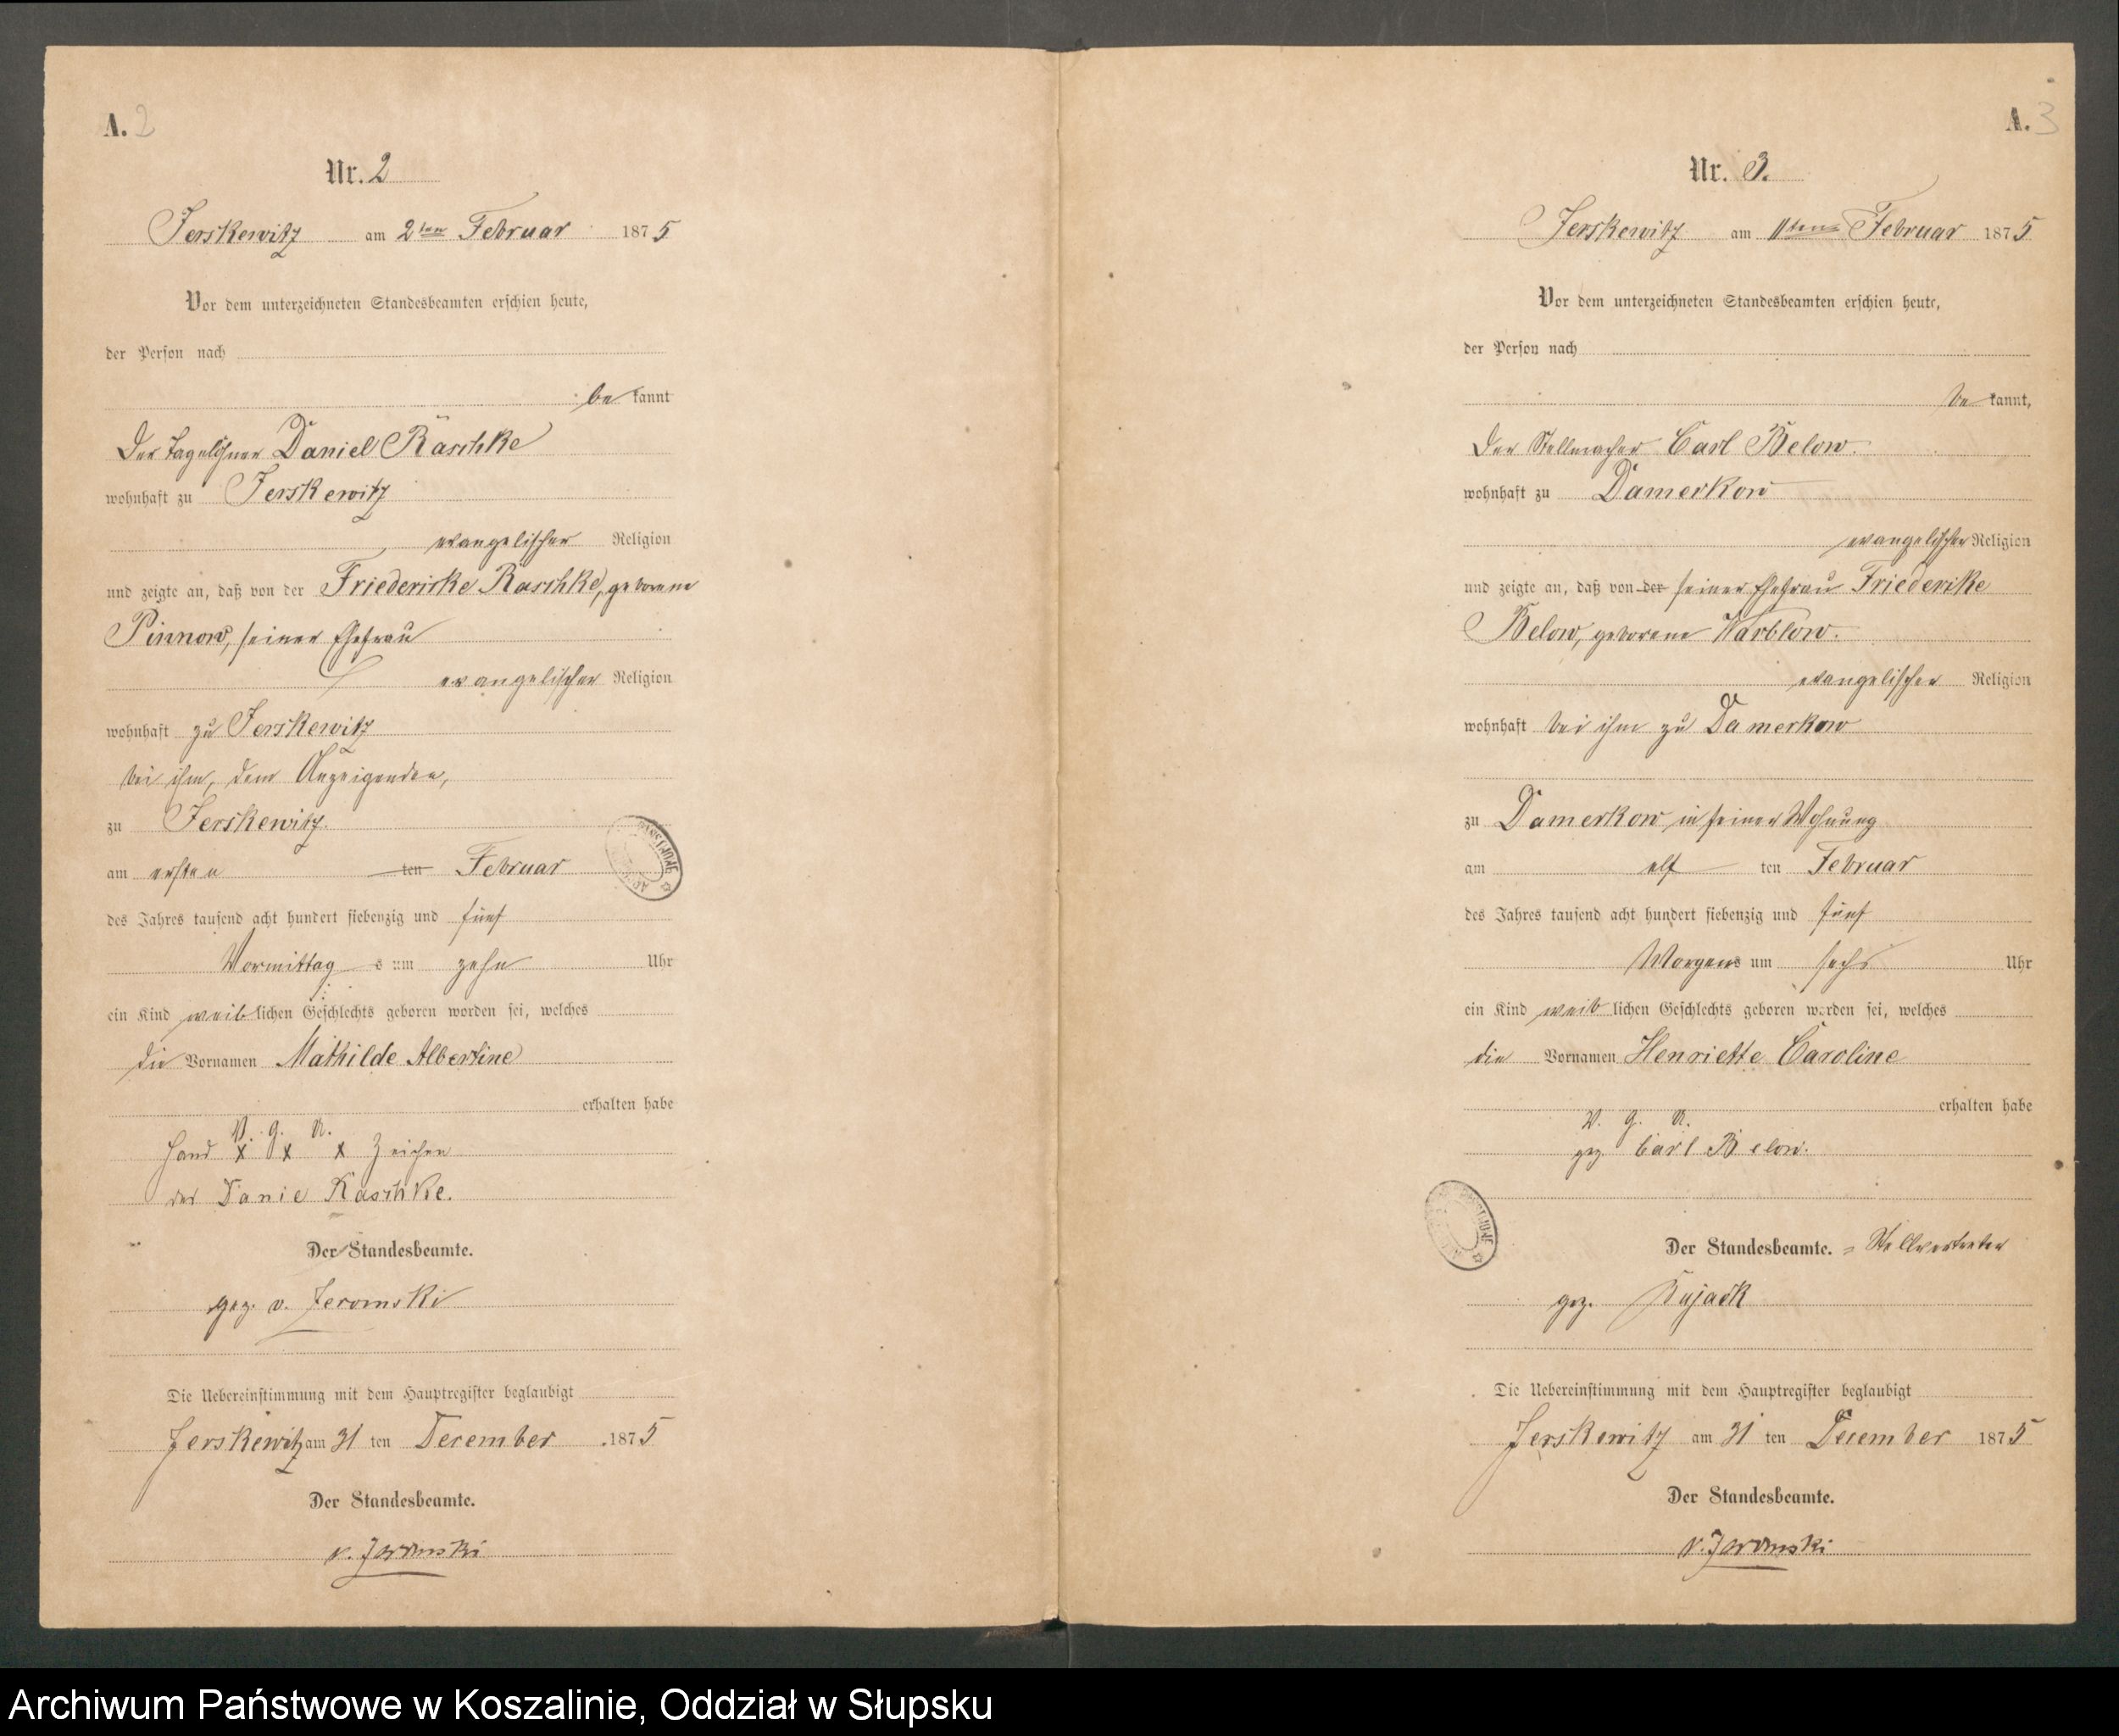 A. 2
Nr. 2
Jerskewitz am 2ten Februar 1875
Vor dem unterzeichneten Standesbeamten erschien heute,
der Person nach
be kannt
Der Tagelöhner Daniel Raschke
wohnhaft zu Jerskewitz
evangelischer Religion
und zeigte an, daß von der Friederike Raschke, geborene
Pinnow, seiner Ehefrau
evangelischer Religion
wohnhaft zu Jerskewitz
bei ihm, dem Anzeigenden,
zu Jerskewitz.
am ersten ten Februar
des Jahres tausend acht hundert siebenzig und fünf
Vormittag s um zehn Uhr
ein Kind weiblichen Geschlechts geboren worden sei, welches
die Vornamen Mathilde Albertine
erhalten habe
V. g. u.
Hand x x x Zeichen
des Danie Raschke.
Der Standesbeamte.
gez. v. Jeromski
Die Uebereinstimmung mit dem Hauptregister beglaubigt
Jerskewitz am 31 ten December 1875
Der Standesbeamte.
v. Jeromski
A. 3
Nr. 3.
Jerskewitz am 11ten Februar 1875
Vor dem unterzeichneten Standesbeamten erschien heute,
der Person nach
be kannt,
Der Stellmacher Carl Below.
wohnhaft zu Damerkow
evangelischer Religion
und zeigte an, daß von der seiner Ehefrau Friederike
Below, geborene Warblow.
evangelischer Religion
wohnhaft bei ihm zu Damerkow
zu Damerkow in seiner Wohnung
am elf ten Februar
des Jahres tausend acht hundert siebenzig und fünf
Morgens um sechs Uhr
ein Kind weiblichen Geschlechts geboren worden sei, welches
die Vornamen Henriette Caroline
erhalten habe
V. g. u.
gez. Carl Below.
Der Standesbeamte. = Stellvertreter
gez. Kujack
Die Uebereinstimmung mit dem Hauptregister beglaubigt
Jerskewitz am 31 ten December 1875
Der Standesbeamte.
v. Jeromski
Archiwum Państwowe w Koszalinie, Oddział w Słupsku